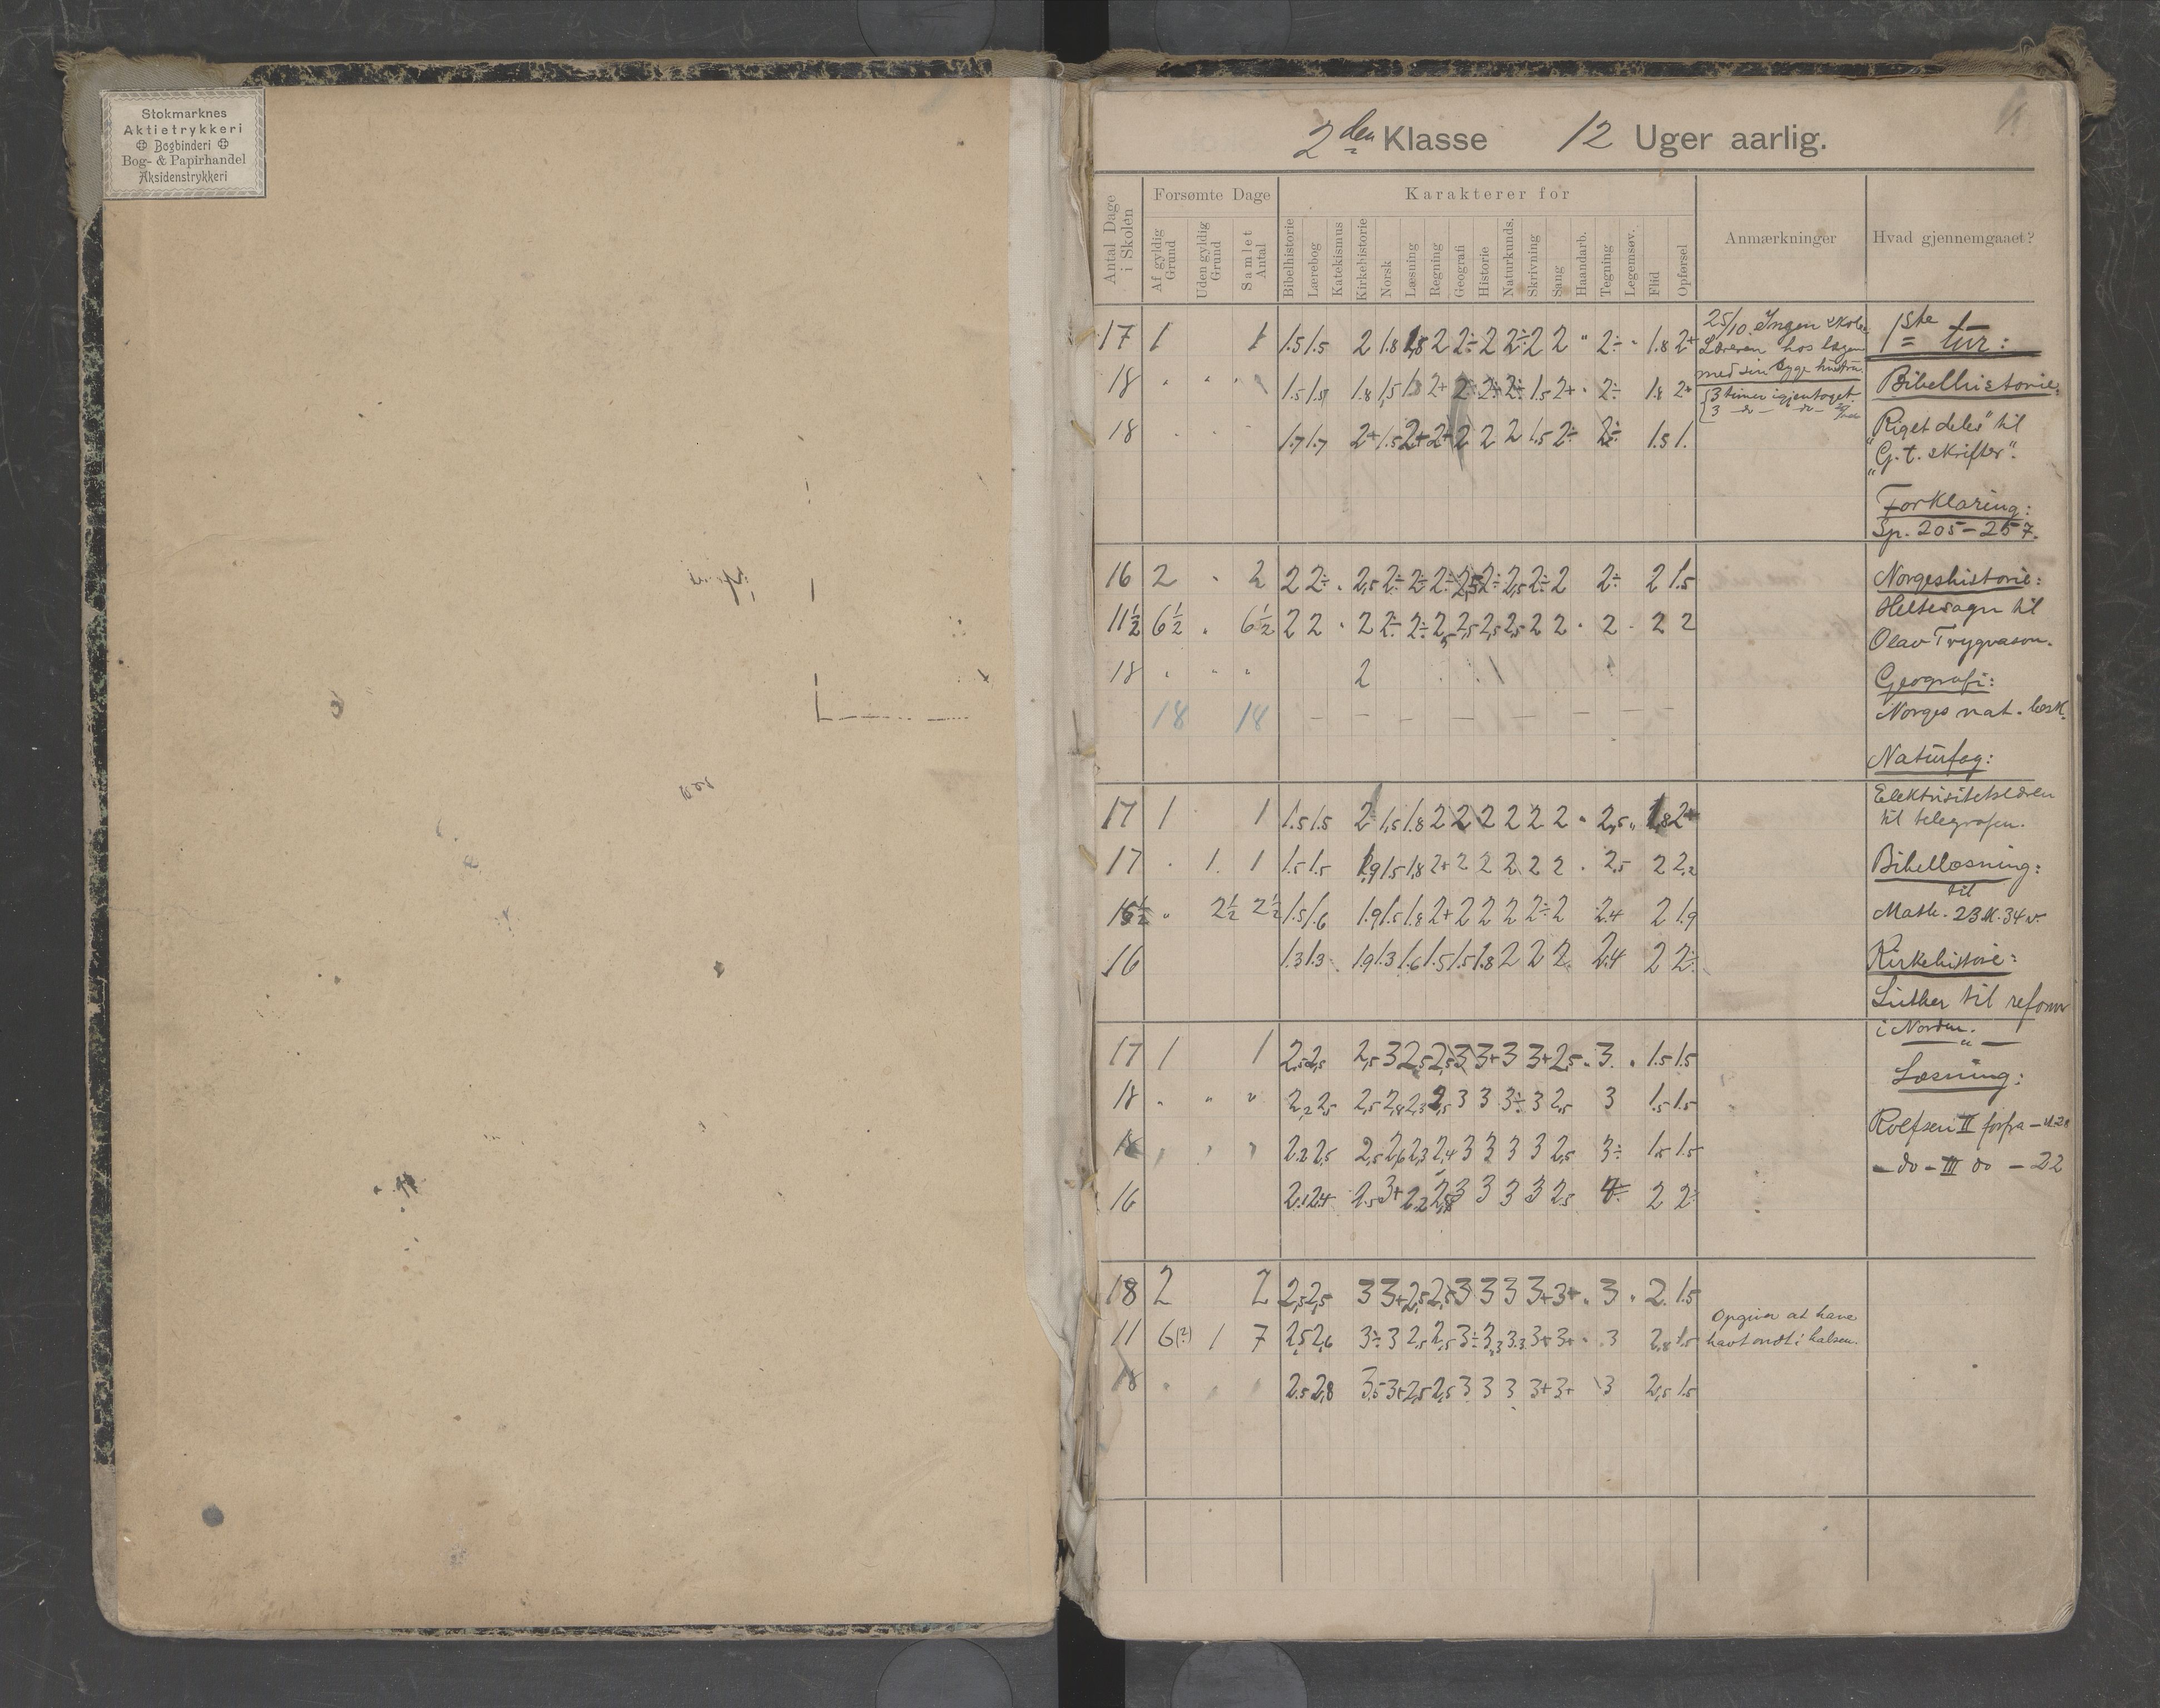 Stokmarknes
Aktietrykkeri
Bogbinderi
Bog- & Papirhandel
Aksidenstrykkeri
2den Klasse 12 Uger aarlig.
Antal Dage i Skolen
Forsømte Dage
Af gyldig Grund
Uden gyldig Grund
Samlet Antal
Karakterer for
Bibelhistorie
Lærebog
Katekismus
Kirkehistorie
Norsk
Læsning
Regning
Geografi
Historie
Naturkunds.
Skrivning
Sang
Haandarb.
Tegning
Legemsøv.
Flid
Opførsel
Anmærkninger
Hvad gjennemgaaet?
17 1 1 1.5 1.5 2 1.8 1,8 2 2÷ 2 2÷ 2 2 " 2÷ " 1.8 2+
18 " " " 1.5 1.5 1.8 1,5 2+ 2÷ 2÷ 2÷ 1.5 2+ 2÷ 1.8 2+
18 1.7 1.7 2+ 1.5 2+ 2+ 2 2 2 1.5 2÷ 2÷ 1.5 1.
25/10. Ingen skole
Læreren hos lægen
med sin syge hustru
3 timer igjentaget
3 - do - - do -
1ste tur:
Bibelhistorie:
"Riget deles" til
"G. t. skrifter".
Forklaring:
Sp. 205-257.
16 2 2 2 2÷ 2,5 2÷ 2÷ 2÷ 2,5 2÷ 2,5 2÷ 2 2÷ 2 1.5
11½ 6½ 6½ 2 2 2 2÷ 2÷ 2,5 2,5 2,5 2,5 2 2 2 2 2
18 " " " 2
18 18 – – – – – – – –
Norgeshistorie:
Heltesagn til
Olav Trygvason.
Geografi:
Norges nat. besk.
Naturfag:
17 1 1 1.5 1.5 2 1,5 1.8 2 2 2 2 2 2 2,5 1,8 2+
17 1. 1 1.5 1.5 1,9 1.5 1,8 2+ 2 2 2 2 2 2,5 2 2,2
15½ " 2½ 2½ 1.5 1.6 1.9 1.5 1.8 2+ 2 2 2 2÷ 2 2.4 2 1.9
16 1.3 1.3 1.9 1.3 1.6 1.5 1.5 1.8 2 2 2 2.4 2 2÷
Elektrisitetslæren
til telegrafen.
Bibellæsning:
til
Math. 23 K. 34 v.
Kirkehistorie:
Luther til reform
i Norden.
17 1 1 2,5 2,5 2,5 3 2,5 2,5 3 3+ 3 3+ 2,5 3 1.5 1.5
18 " " " 2,2 2,5 2,5 2,8 2,3 2,5 3 3 3÷ 3 2,5 3 1.5 1.5
18 2.2 2,5 2,5 2,6 2,3 2,4 3 3 3 3 2,5 3÷ 1.5 1.5
16 2.1 2.4 2.5 3+ 2.2 3 3 3 3 2.5 2 2÷
Læsning:
Rolfsen II forfra -
- do - III do - 22
18 2 2 2,5 2,5 3 3+ 2,5 2,5 3 3 3 3+ 3+ 3 2. 1.5
11 6(?) 1 7 2,5 2,6 3÷ 3 2,5 2,5 3÷ 3,3 3.3 3+ 3+ 3 2,8 1.5
18 2.5 2,8 3.5 3+ 2,5 2,5 3 3 3 3+ 3+ 3 2,5 1.5
Opgiver at have
havt ondt i halsen.